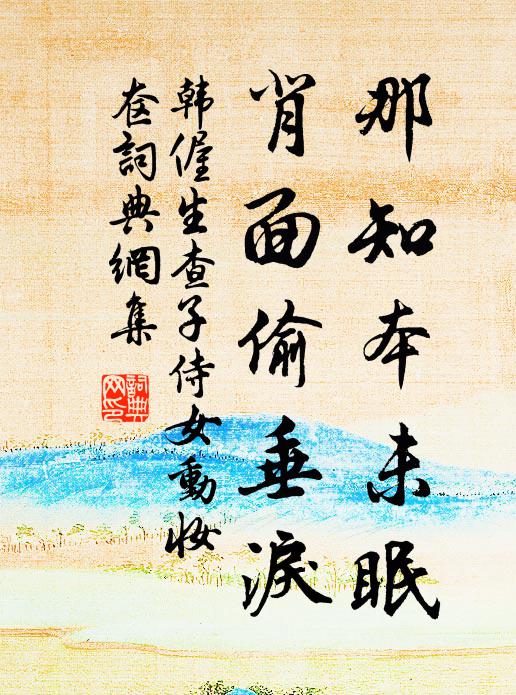 那知本未眠
背面偷垂淚
韩偓生查子侍女動妝
奁詞典網集
詞典网印